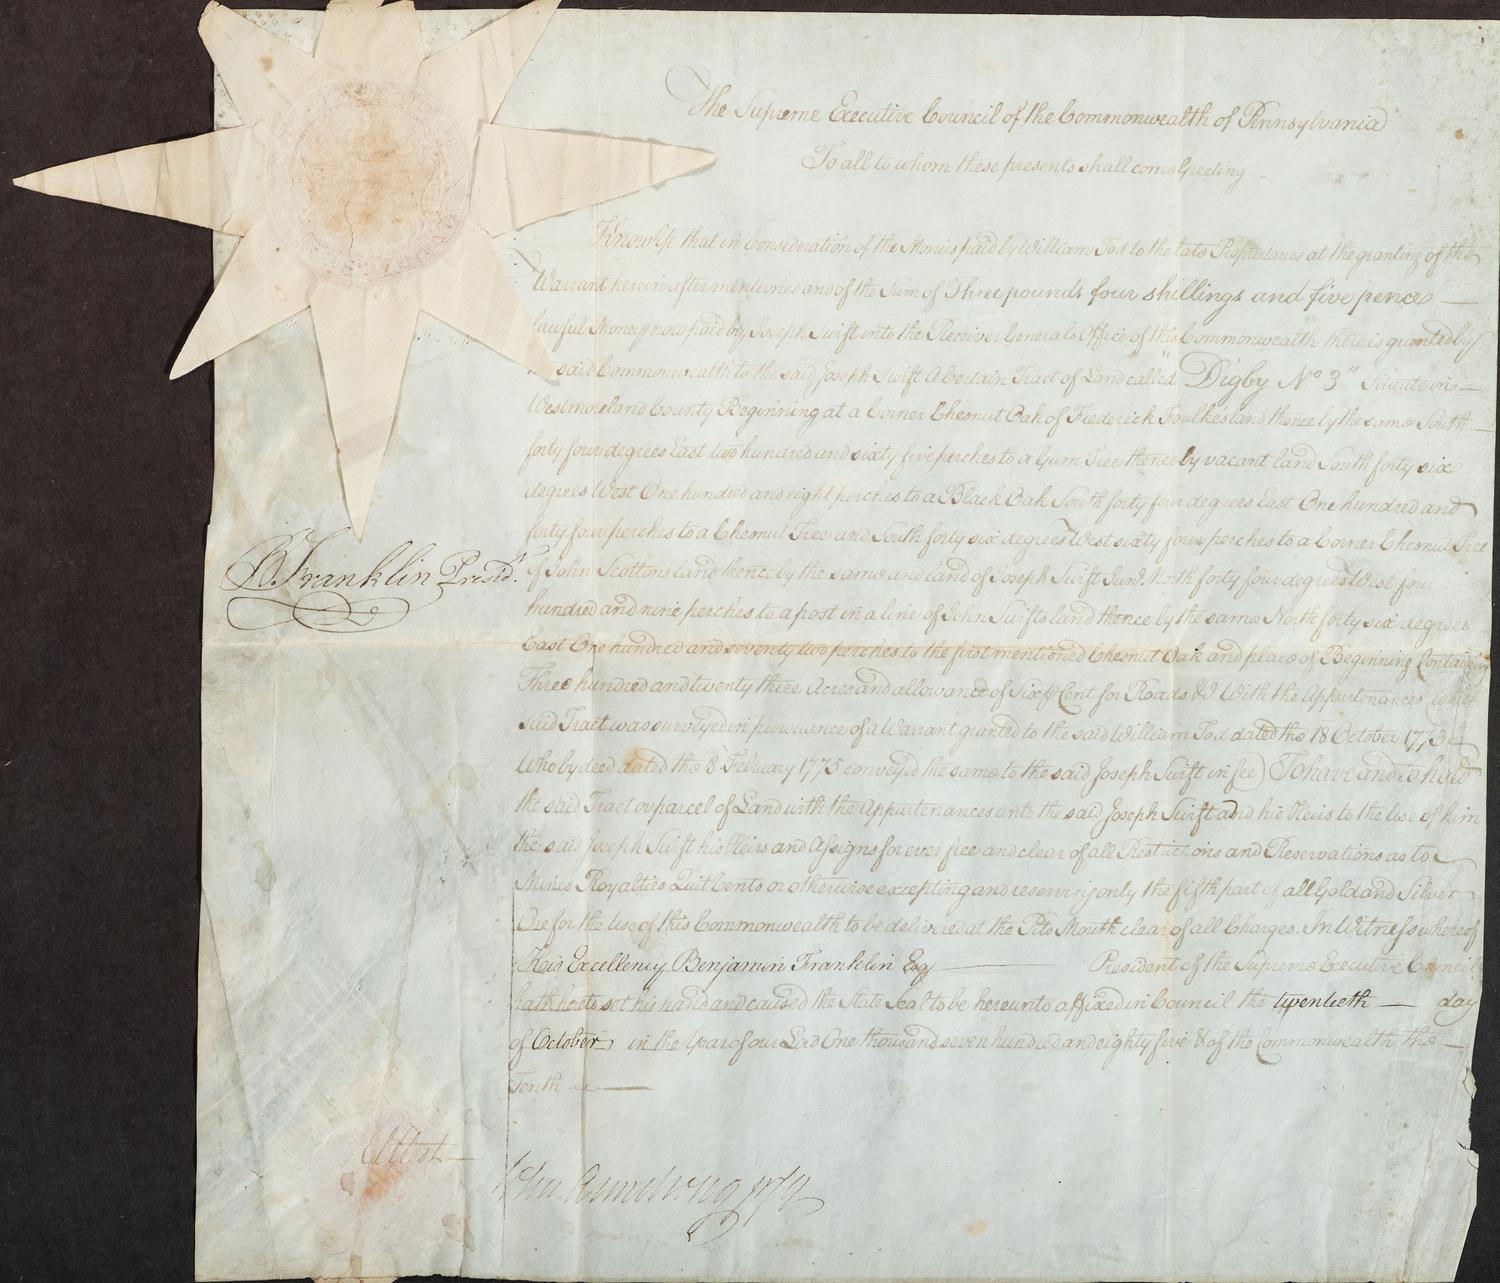 The Supreme Executive Council of the Commonwealth of Pennsylvania
To all to whom these presents shall come Greeting
Know Ye that in Consideration of the Monies paid by William Tod to the late Proprietaries at the granting of the
Warrant herein after mentioned and of the Sum of Three pounds four shillings and five pence
lawful Money now paid by Joseph Swift into the Receiver Generals Office of this Commonwealth there is granted by
said Commonwealth to the said Joseph Swift A Certain Tract of Land called "Digby No 3" Situate in
Westmoreland County Beginning at a Corner Chesnut Oak of Frederick Foulke's land thence by the same South
forty four degrees East two hundred and sixty five perches to a Gum Tree thence by vacant land South forty six
degrees West One hundred and eight perches to a Black Oak South forty four degrees East One hundred and
forty four perches to a Chesnut Tree and South forty six degrees West sixty four perches to a Corner Chesnut Tree
B Franklin Presidt.
of John Scottons land thence by the same and land of Joseph Swift Junr. North forty four degrees West four
hundred and nine perches to a post in a line of John Swifts land thence by the same North forty six degrees
East One hundred and seventy two perches to the first mentioned Chesnut Oak and place of Beginning Containing
Three hundred and twenty three Acres and allowance of Six ⅌ Cent for Roads &c With the Appurtenances (which
said Tract was surveyed in pursuance of a Warrant granted to the said William Tod dated the 18 October 1773
Who by deed dated the 8 February 1775 conveyed the same to the said Joseph Swift in fee) To have and to hold
the said Tract or parcel of Land with the Appurtenances unto the said Joseph Swift and his Heirs to the use of him
the said Joseph Swift his Heirs and Assigns for ever free and clear of all Restrictions and Reservations as to
Mines Royalties Quit Rents or otherwise excepting and reserving only the fifth part of all Gold and Silver
Ore for the use of this Commonwealth to be delivered at the Pits Mouth clear of all Charges. In Witness whereof
His Excellency Benjamin Franklin Esq President of the Supreme Executive Council
hath hereto set his hand and caused the State Seal to be hereunto affixed in Council the twentieth day
of October in the Year of our Lord One thousand seven hundred and eighty five & of the Commonwealth the
Tenth
Attest
John Armstrong